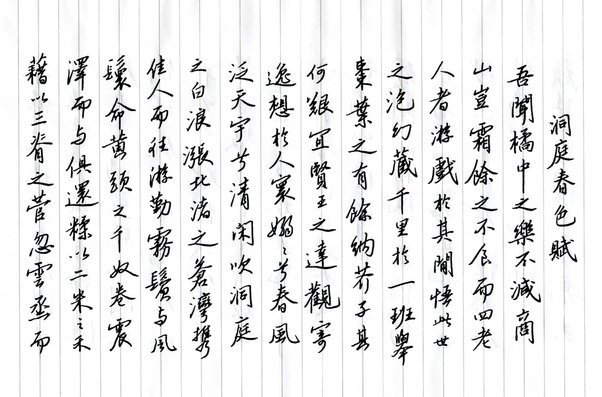 洞庭春色賦
吾聞橘中之樂不減商
山豈霜餘之不食而四老
人者游戲於其間悟此世
之泡幻藏千里於一班舉
棗葉之有餘納芥子其
何艱宜賢王之達觀寄
逸想於人寰嫋〻兮春風
泛天宇兮清閑吹洞庭
之白浪漲北渚之蒼灣携
佳人而往游勤霧鬢与風
鬟命黃頭之千奴卷震
澤而与俱還糅以二米之禾
藉以三脊之菅忽雲烝而